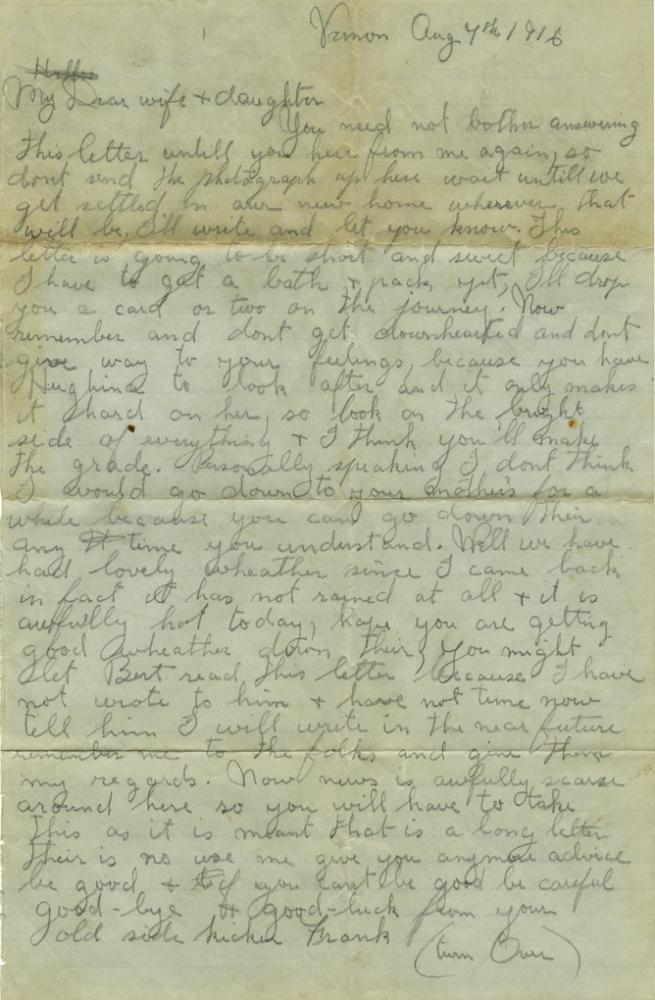 Vernon Aug 7th 1916
My Dear wife + daughter
You need not bother answering
this letter untill you here from me again, so
dont send the photograph up here wait untill we
get settled in our new home wherever that
will be, I'll write and let you know. This
letter is going to be short and sweet because
I have to get a bath + pack yet, I'll drop
you a card or two on the journey. Now
remember and dont get downhearted and dont
give way to your feelings, because you have
to look after and it only makes
it hard on her, so look on the bright
side of everything + I think you'll make
the grade. Personally speaking I dont think
I would go down to your mothers for a
while because you can go down their
any time you understand. Well we have
had lovely wheather since I came back
in fact it has not rained at all + it is
awfully hot today, hope you are getting
good wheather down their, you might
let Bert read this letter because I have
not wrote to him + have not time now
tell him I will write in the near future
remember me to the folks and give them
my regards. Now news is awfully scarse
around here so you will have to take
this as it is meant that is a long letter
their is no use me give you anymore advice
be good + if you cant be good be careful
good-bye + good-luck from your
old side kicker Frank
(turn Over)